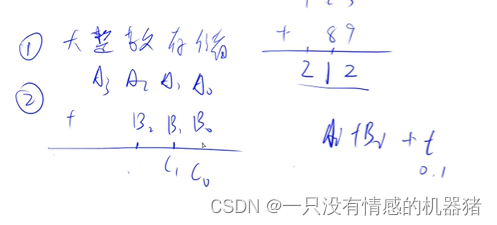 ① 大整数存储
② A₃ A₂ A₁ A₀
+ B₂ B₁ B₀
C₁ C₀
+ 89
212
+ t
0.1
CSDN @一只没有情感的机器猪